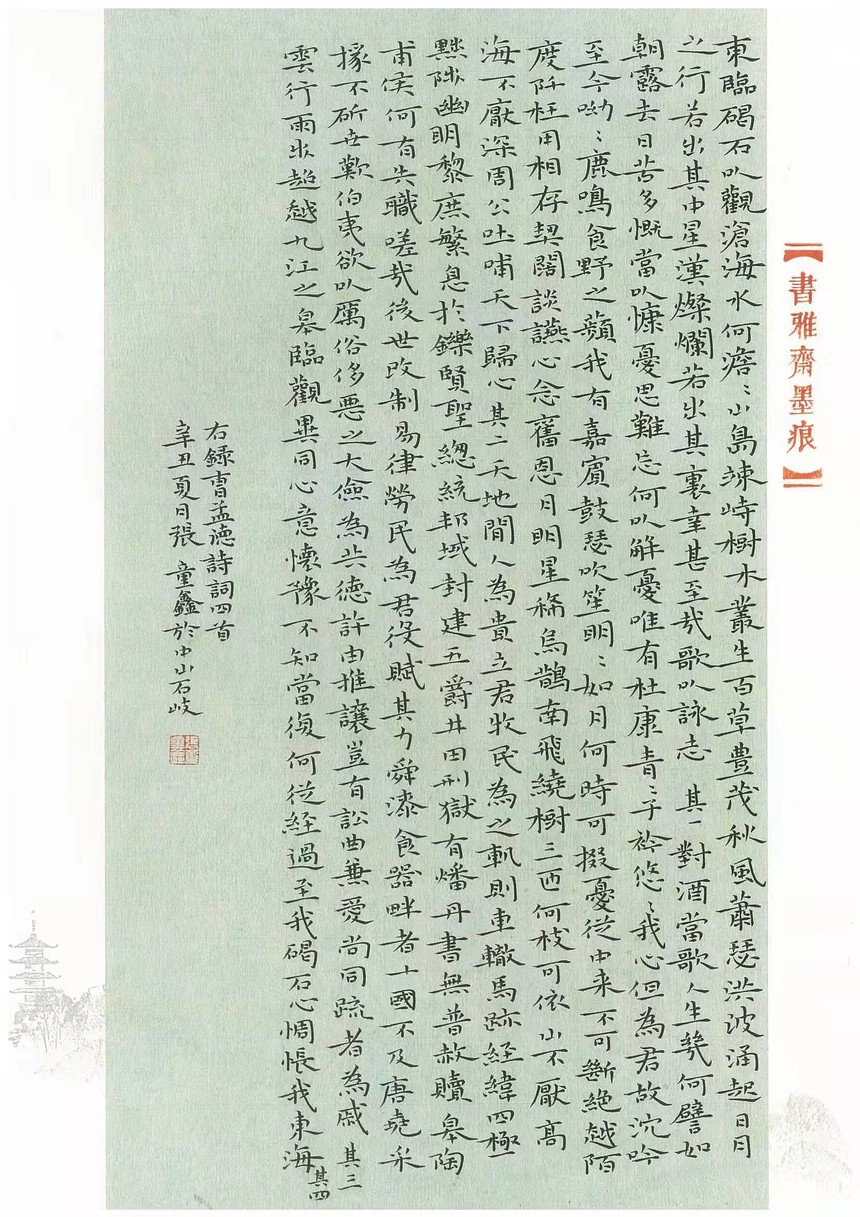 【書雅齋墨痕】
東臨碣石以觀滄海水何澹〻山島竦峙樹木叢生百草豐茂秋風蕭瑟洪波涌起日月
之行若出其中星漢燦爛若出其裏幸甚至哉歌以詠志 其一 對酒當歌人生幾何譬如
朝露去日苦多慨當以慷憂思難忘何以解憂唯有杜康青〻子衿悠〻我心但為君故沉吟
至今呦〻鹿鳴食野之蘋我有嘉賓鼓瑟吹笙明〻如月何時可掇憂從中来不可斷絕越陌
度阡枉用相存契闊談讌心念舊恩月明星稀烏鵲南飛繞樹三匝何枝可依山不厭高
海不厭深周公吐哺天下歸心 其二 天地間人為貴立君牧民為之軌則車轍馬跡経緯四極
黜陟幽明黎庶繁息於鑠賢聖總統邦域封建五爵井田刑獄有燔丹書無普赦贖皋陶
甫侯何有失職嗟哉後世改制易律勞民為君役賦其力舜漆食器畔者十國不及唐堯采
椽不斫世歎伯夷欲以厲俗侈惡之大儉為共德許由推讓豈有訟曲兼愛尚同疏者為戚 其三
雲行雨步超越九江之皋臨觀異同心意懷豫不知當復何從経過至我碣石心惆悵我東海 其四
右錄曹孟德詩詞四首
辛丑夏日張童鑫於中山石岐